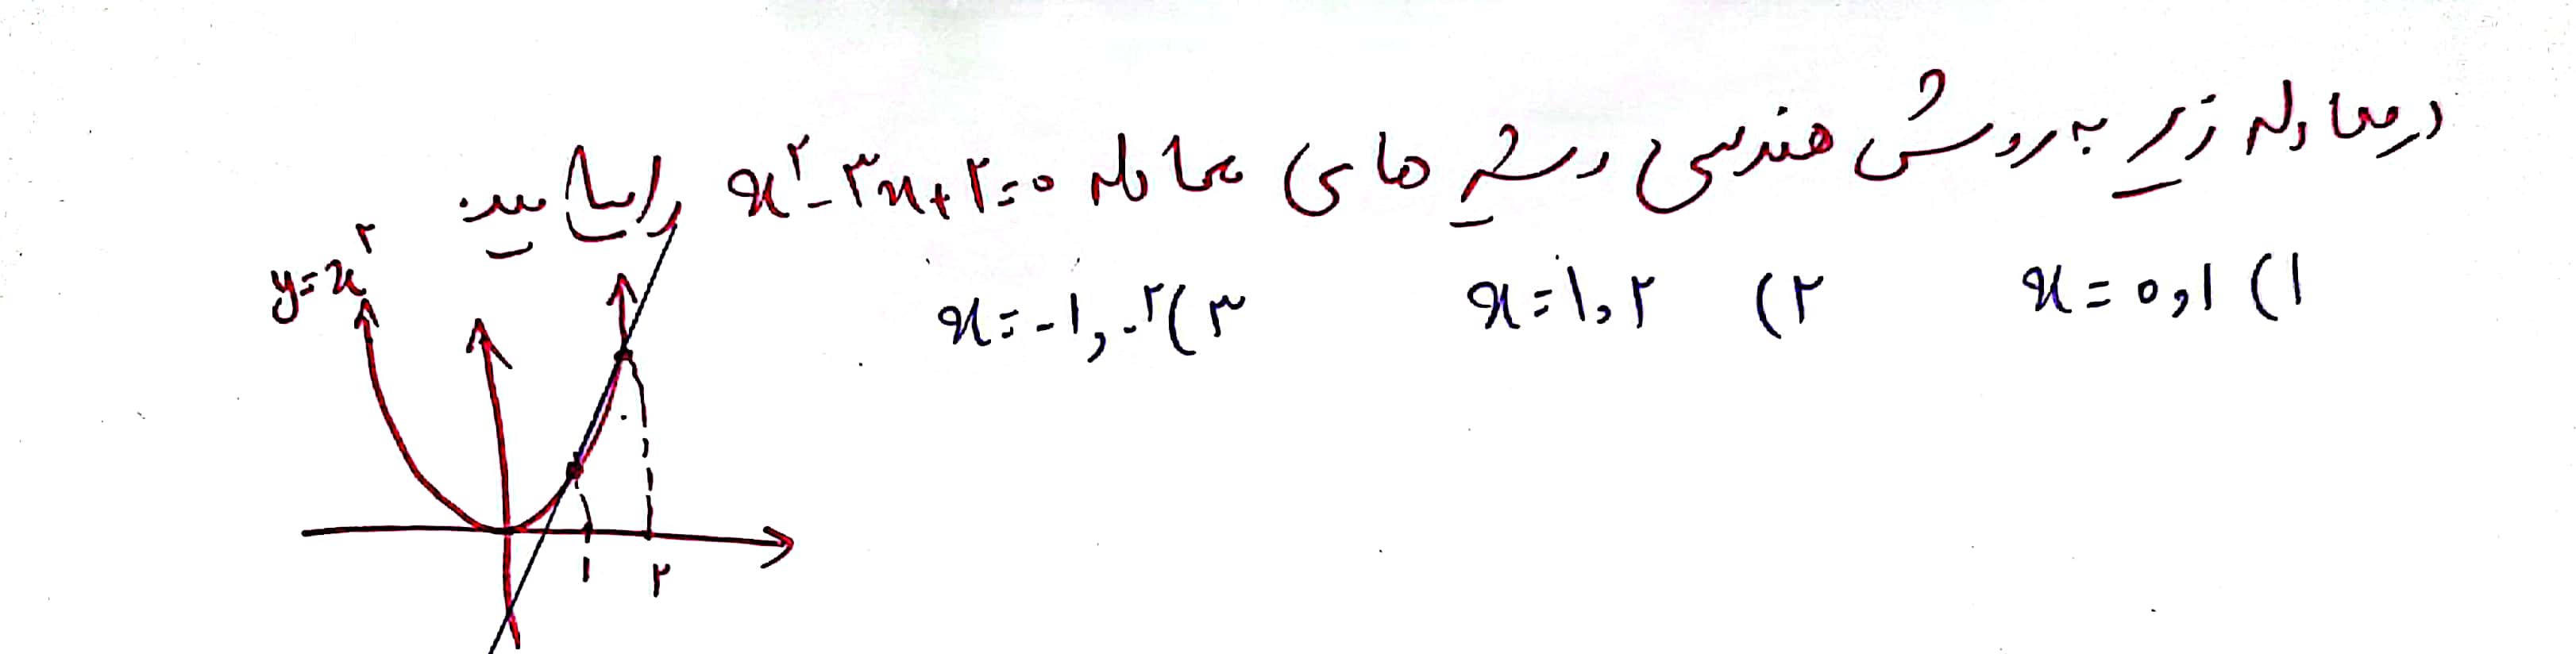 در معادله زیر به روش هندسی ریشه های معادله x²-۳x+۲=۰ را بیابید.
۱) x=۰,۱ ۲) x=۱,۲ ۳) x=-۱,-۲
y=x²
۱ ۲